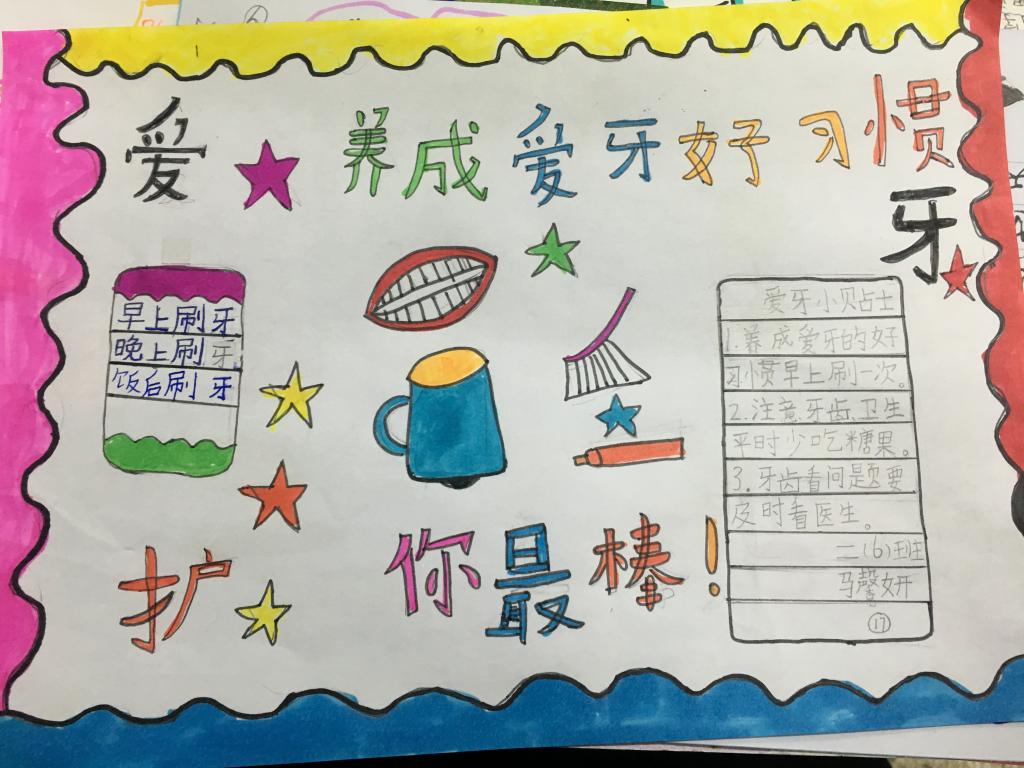 爱 养成爱牙好习惯
牙
早上刷牙
晚上刷牙
饭后刷牙
爱牙小贝占士
1.养成爱牙的好
习惯早上刷一次。
2.注意牙齿卫生
平时少吃糖果。
3.牙齿看问题要
及时看医生。
二(6)班
马馨妍
⑰
护
你最棒！